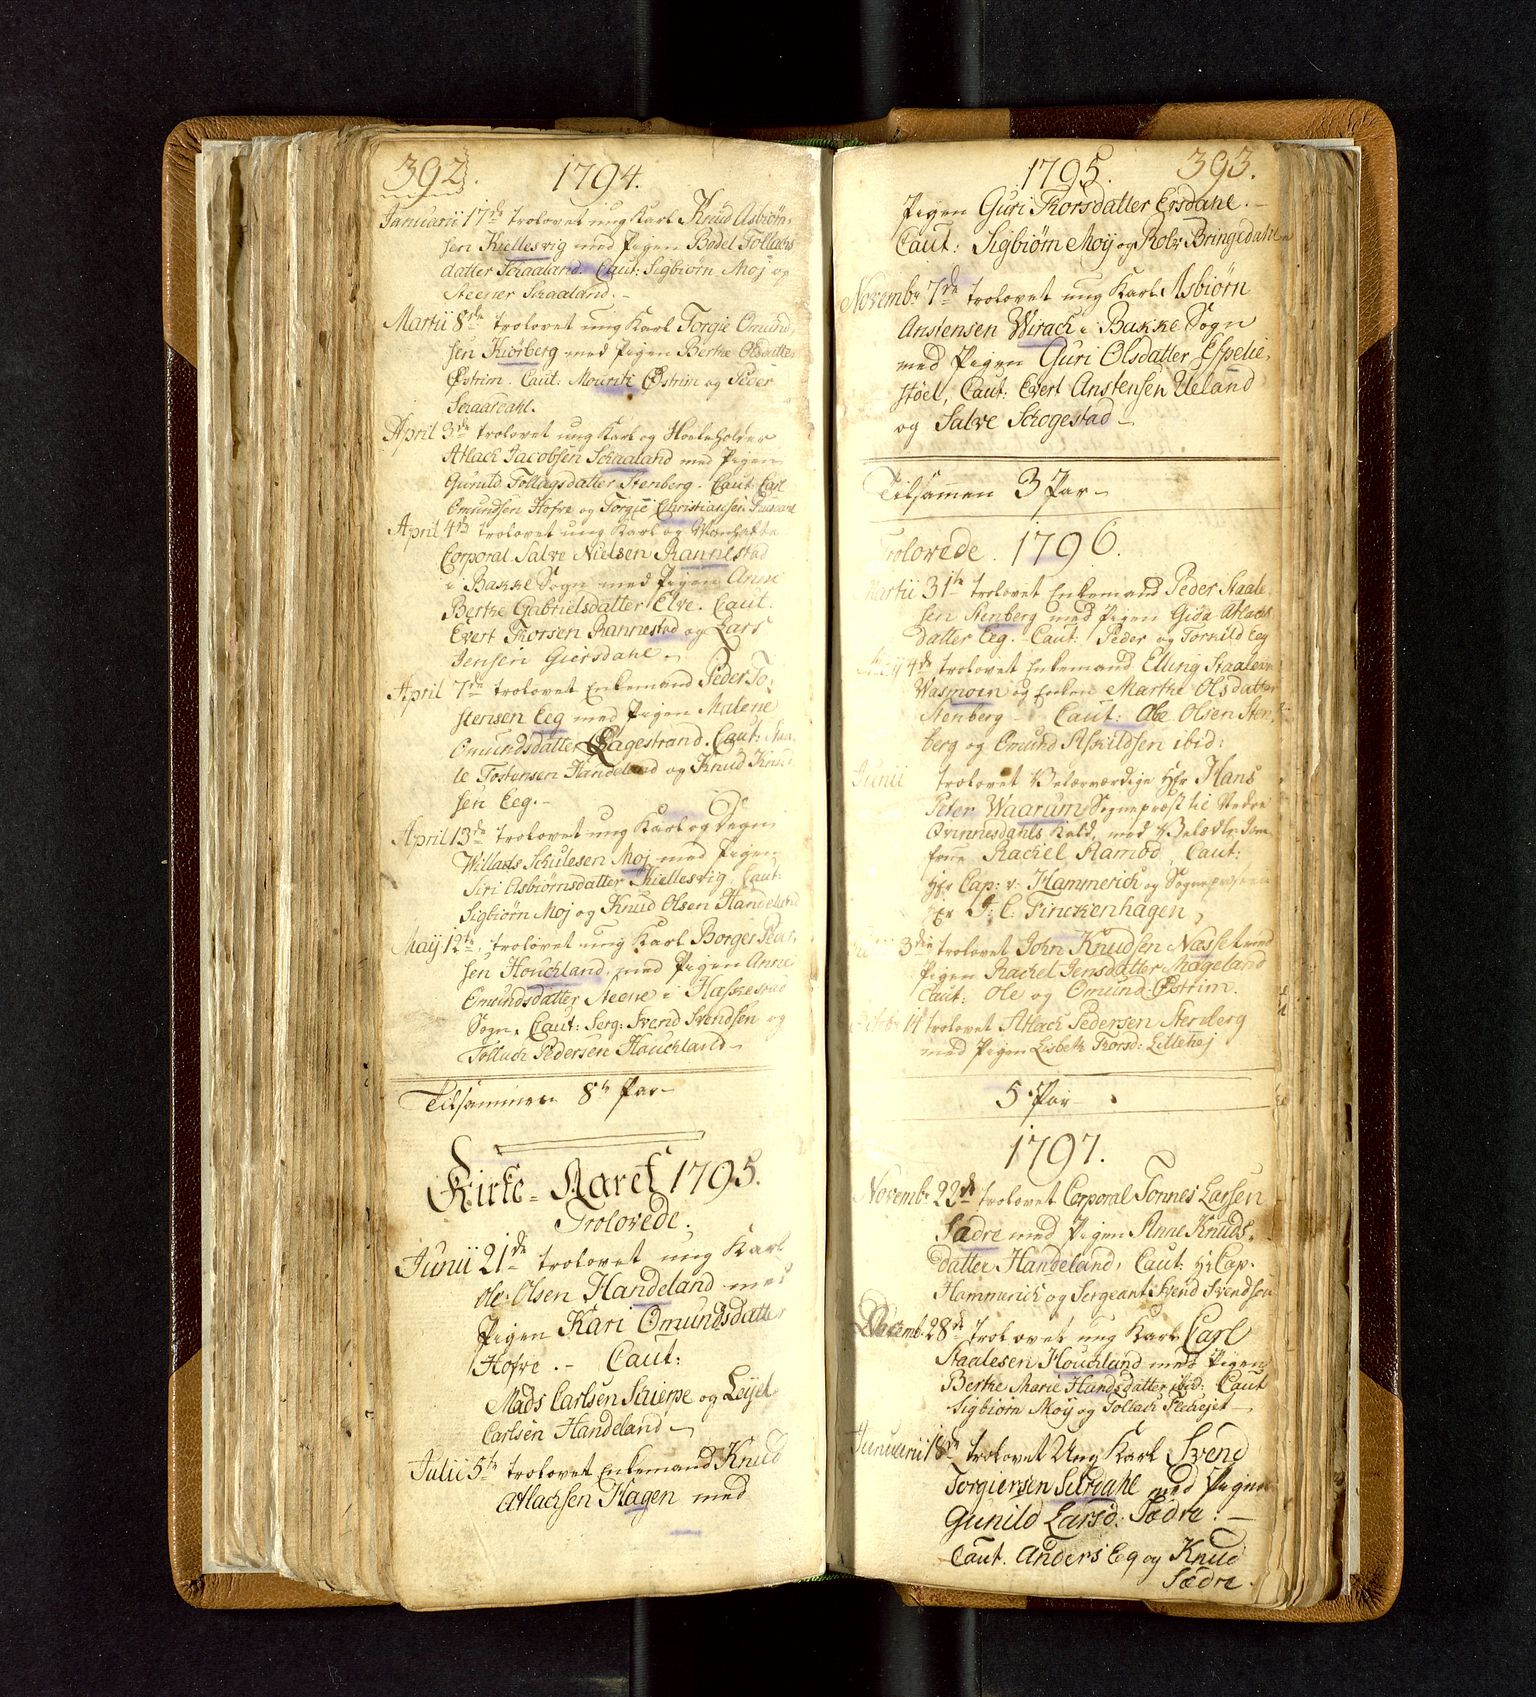 392.
1794.
Januarii 17de trolovet ung Karl Knud Asbiørn-
sen Kiellesvig med Pigen Bodel Tollachs
datter Scaaland. Caut: Sigbiørn Moj og
Steener Scaaland.
Martii 8de trolovet ung Karl Torgie Omund
sen Kiørberg med Pigen Berthe Olsdatter
Østrim. Caut: Mouritz Østrim og Peder
Scaardahl.
April 3de trolovet ung Karl og
Atlach Jacobsen Schaaland med Pigen
Gunild Tollagsdatter Stenberg. Caut: Carl
Omundsen Hofre og Torgie Christiansen
April 4de trolovet ung Karl og
Corporal Salve Nielsen Rannestad
i Bakke Sogn med Pigen Anne
Berthe Gabrielsdatter Elve. Caut:
Evert Thorsen Rannestad og Lars
Jensen Giersdahl.
April 7de trolovet Enkemand Peder To-
stensen Eeg med Pigen Malene
Omundsdatter Eagestrand. Caut:
le Tostensen Handeland og Knud
sen Eeg.
April 13de trolovet ung Karl og Degn
Willads Schulesen Moj med Pigen
Siri Asbiørnsdatter Kiellesvig, Caut:
Sigbiørn Moj og Knud Olsen Handeland
Maji 12te, trolovet ung Karl Borger Peder-
sen Houchland, med Pigen Anne
Omundsdatter Steene i Hæskestad
Sogn. Caut: Serg: Svend Svendsen og
Tollach Pedersen Houchland
Tilsammen 8te Par
Kirke-Aaret 1795.
Trolovede.
Junii 21de trolovet ung Karl
Ole Olsen Handeland med
Pigen Kari Omundsdatter
Hofre. Caut:
Mads Carlsen Schierpe og Leijel
Carlsen Handeland
Julii 5te trolovet Enkemand Knud
Atlachsen Hagen med
1795. 393.
Pigen Guri Thorsdatter Ersdahl.
Caut: Sigbiørn Moy og Rolv Bringedahl
Novembr. 7de trolovet ung Karl Asbiørn
Anstensen Wirach i Bakke Sogn
med Pigen Guri Olsdatter Espelie-
støel, Caut: Evert Anstensen Ueland
og Salve Schogestad
Tilsamen 3 Par
Trolovede. 1796.
Martii 31te trolovet Enkemand Peder Staale
sen Stenberg med Pigen Gida Atlachs
datter Eeg. Caut: Peder og Torkild Eeg
Meij 4de trolovet Enkemand Elling Staalesen
Wasmoen og Enken Marthe Olsdatter
Stenberg Caut: Ole Olsen Sten-
berg og Omund Askildsen ibid:
Junii trolovet Velærværdige Hr Hans
Peter Waarum Sognepræst til Nedre
Qvinnesdahls Kald, med Jom
frue Rachel Ramod, Caut:
Hr Cap: v: Hammerich og Sognepræsten
Hr J: C: Finckenhagen,
3die trolovet John Knudsen Næsset med
Pigen Rachel Jensdatter Mageland
Caut: Ole og Omund Østrim.
Octobr 14 trolovet Atlach Pedersen Stenberg
med Pigen Lisbeth Thorsd: Littehej
5 Par
1797.
Novembr 22de trolovet Corporal Tonnes Larsen
Sædre med Pigen Anne Knuds-
datter Handeland, Caut: Hr Cap.
Hammerich og Sergeant Svend Svendsen
Decembr 28de trolovet ung Karl Carl
Staalesen Houchland med Pigen
Berthe Marie Handsdatter ibid: Caut
Sigbiørn Moy og Tollach
Januarii 18de trolovet Ung Karl Svend
Torgiersen Selrdahl med Pigen
Gunild Larsd: Sædre:
Caut. Anders Eeg og Knud
Sædre.